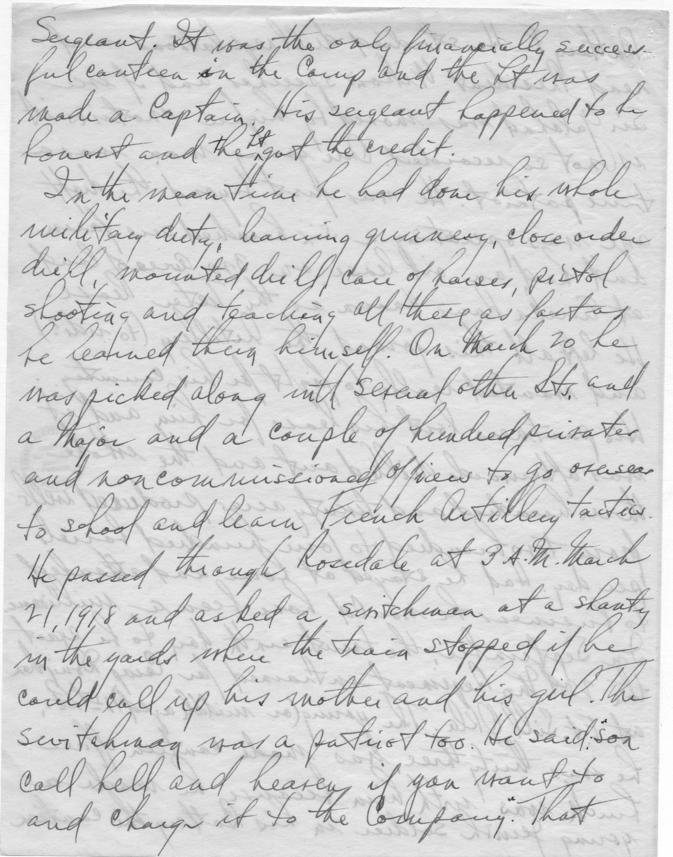 Sergeant. It was the only financially success-
ful canteen in the Camp and the Lt was
made a Captain. His sergeant happened to be
honest and the Lt got the credit.
In the meantime he had done his whole
military duty, learning gunnery, close order
drill, mounted drill, care of horses, pistol
shooting and teaching all these as fast as
he learned them himself. On March 20 he
was picked along with several other Lts. and
a Major and a couple of hundred privates
and noncommissioned officers to go overseas
to school and learn French Artillery tactics.
He passed through Rosedale at 3 A.M. March
21, 1918 and asked a switchman at a shanty
in the yards where the train stopped if he
could call up his mother and his girl. The
switchman was a patriot too. He said: "son
call hell and heaven if you want to
and charge it to the Company." That